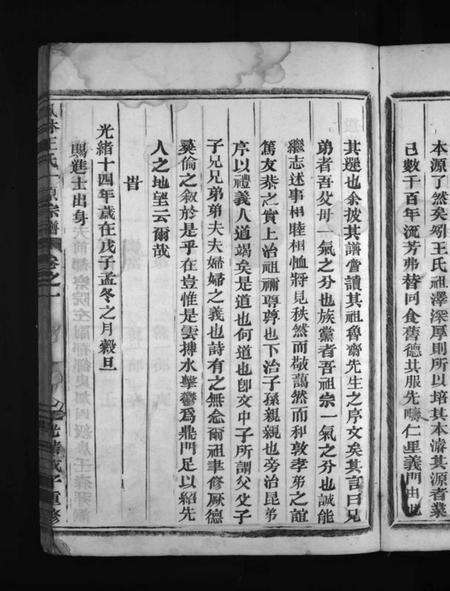 本源了然矣矧王氏祖澤深厚則所以培其本濬其源者業
已數千百年流芳弗替同食舊德其服先疇仁里義門由
其選也余披其譜嘗讀其祖魯齋先生之序文矣其言曰兄
弟者吾父母一氣之分也族黨者吾祖宗一氣之分也誠能
繼志述事相睦相恤將見秩然而敬藹然而和敦孝弟之誼
篤友恭之實上治祖禰尊尊也下治子孫親親也旁治昆弟
序以禮義人道竭矣是道也何道也卽文中子所謂父父子
子兄兄弟弟夫夫婦婦之義也詩有之無念爾祖聿修厥德
彝倫之敘於是乎在豈惟是雲摶水擊
爲鼎門足以紹先
人之地望云爾哉
旹
光緒十四年歲在戊子孟冬之月穀旦
賜進士出身
王氏
宗譜
卷之一
光緒戊子重修